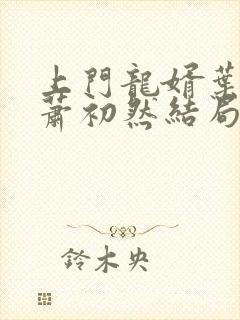 上門龍婿葉
蕭初然結局
鈴木央